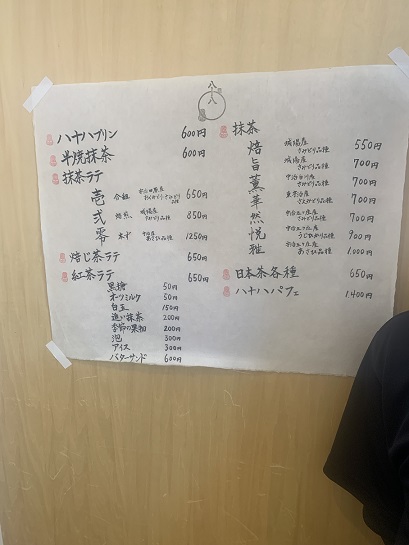 八十八
八十八プリン 600円
半焼抹茶 600円
抹茶ラテ
壱 合組 650円
弐 焙煎 城陽産 さみどり品種 850円
零 本ず あさひ品種 1250円
焙じ茶ラテ 650円
紅茶ラテ 650円
黒糖 50円
オーツミルク 50円
白玉 150円
追い抹茶 200円
季節の果物 200円
泡 300円
アイス 300円
バターサンド 600円
抹茶
焙 城陽産 さみどり品種 550円
旨 城陽産 さみどり品種 700円
薫 宇治白川産 さみどり品種 700円
華 700円
然 700円
悦 900円
雅 あさひ品種 1,000円
日本茶各種 650円
八十八パフェ 1400円